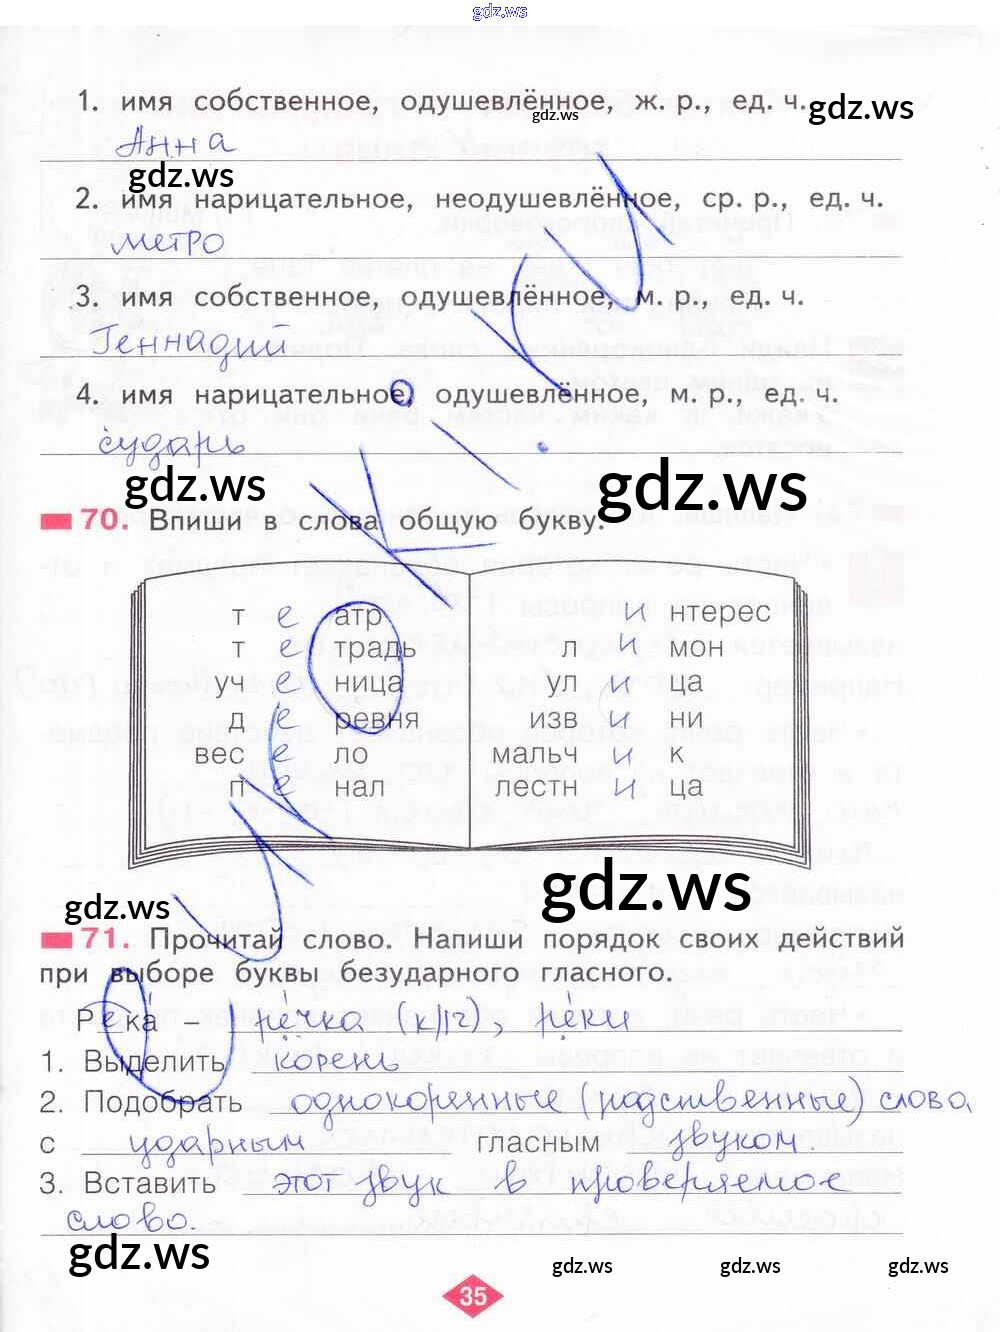 gdz.ws
1. имя собственное, одушевлённое, ж. р., ед. ч.
gdz.ws
gdz.ws
Анна
gdz.ws
2. имя нарицательное, неодушевлённое, ср. р., ед. ч.
метро
3. имя собственное, одушевлённое, м. р., ед. ч.
Геннадий
4. имя нарицательное, одушевлённое, м. р., ед. ч.
сударь
gdz.ws
gdz.ws
70. Впиши в слова общую букву.
т е атр
т е традь
уч е ница
д е ревня
вес е ло
п е нал
и нтерес
л и мон
ул и ца
изв и ни
мальч и к
лестн и ца
gdz.ws
gdz.ws
71. Прочитай слово. Напиши порядок своих действий
при выборе буквы безударного гласного.
Река́ – ре́чка (к//ч), ре́ки
1. Выделить корень
2. Подобрать однокоренные (родственные) слова
с ударным гласным звуком.
3. Вставить этот звук в проверяемое
слово.
gdz.ws
gdz.ws
gdz.ws
gdz.ws
35